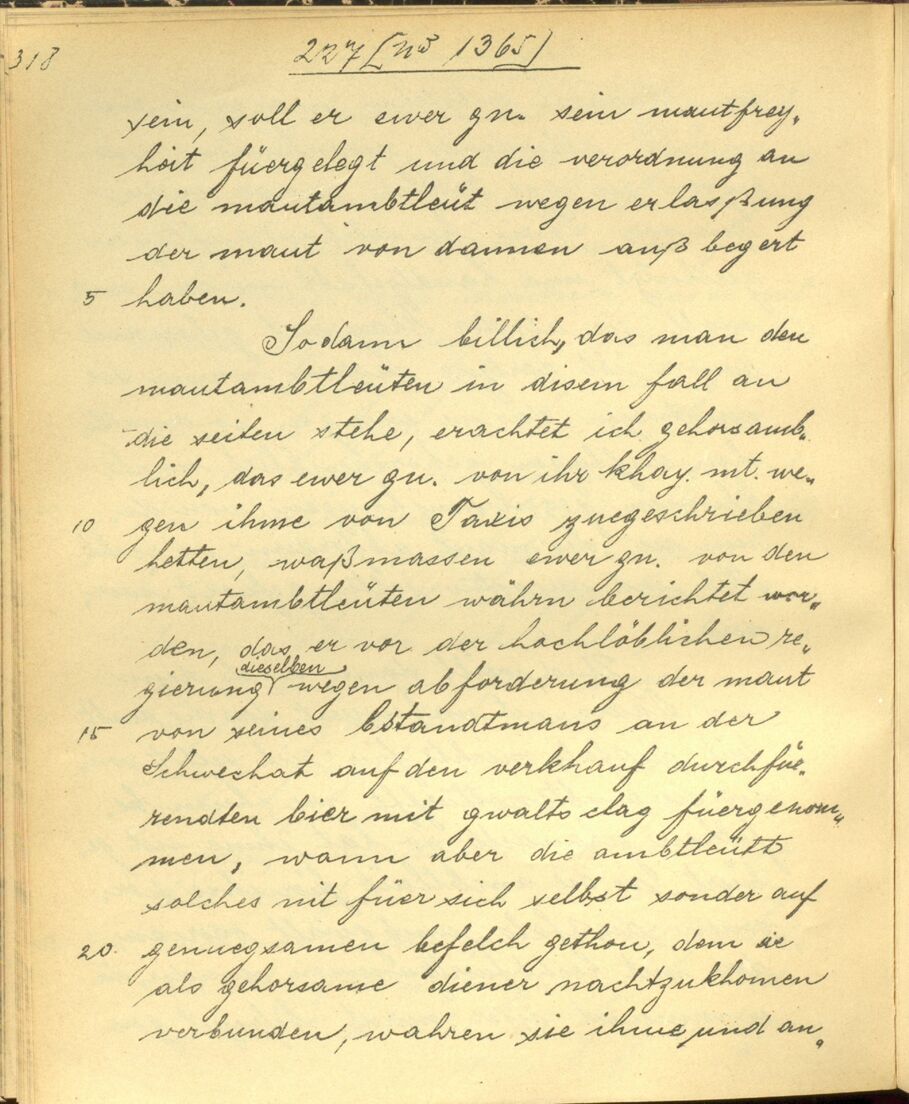 318
227 [no 1365]
sein, soll er ewer gn. sein mautfrey„
heit füergelegt und die verordnung an
die mautambtleüt wegen erlasßung
der maut von dannen auß begert
5 haben.
Sodann billich, das man den
mautambtleüten in disem fall an
die seiten stehe, erachtet ich gehorsamb„
lich, das ewer gn. von ihr khay. mt. we„
10 gen ihme von Taxis zuegeschrieben
hetten, waßmassen ewer gn. von den
mautambtleüten währn berichtet wor„
den, das er vor der hochlöblichen re„
dieselben
gierung wegen abforderung der maut
15 von seines bstandtmans an der
Schwechat auf den verkhauf durchfüe„
rendten bier mit gwalts clag füergenom„
men, wann aber die ambtleütt
solches nit füer sich selbst sonder auf
20. genuegsamen befelch gethon, dem sie
als gehorsame diener nachtzukhomen
verbunden, wahren sie ihme und an„